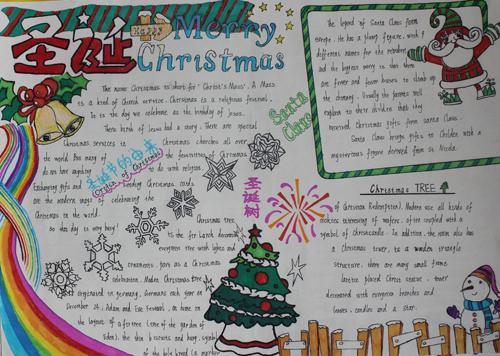 圣诞
Happy
Merry
Christmas
The name Christmas is short for "Christ's Mass". A Mass
is a kind of Church service. Christmas is a religious festival.
It is the day we celebrate as the birthday of Jesus.
There birth of Jesus had a story. There are special
Christmas services in Christmas churches all over
the world. But many of the festivities of Christmas
do not have anything to do with religion.
Exchanging gifts and sending Christmas cards
are the modern ways of celebrating the
Christmas in the world.
So this day is very busy!
圣诞节的由来
Origin of Christmas
Santa
Claus
The legend of Santa Claus form
Europe. He has a plump figure, with 9
different names for the reindeer
and the biggest worry is that there
are fewer and fewer houses to climb up
the chimney. Usually the parents will
explain to their children that they
received Christmas gifts from Santa Claus.
Santa Claus brings gifts to children with a
mysterious figure derived from St. Nicola.
圣诞树
Christmas tree
is the fir Larch decorated
evergreen tree with lights and
ornaments, part as a Christmas
celebration. Modern Christmas tree
originated in Germany, Germans each year on
December 24, Adam and Eve festival, at home in
the layout of a fir tree (one of the garden of
Eden), the thin biscuits and hang, symbol
of the holy bread (a marker
Christmas TREE
of Christian Redemption). Modern use all kinds of
cookies instead of wafers, often coupled with a
symbol of Christ candle. In addition, the room also has
a Christmas tower, is a wooden triangle
structure, there are many small frame
lattice placed Christ statue, tower
decorated with evergreen branches and
leaves, candles and a star.